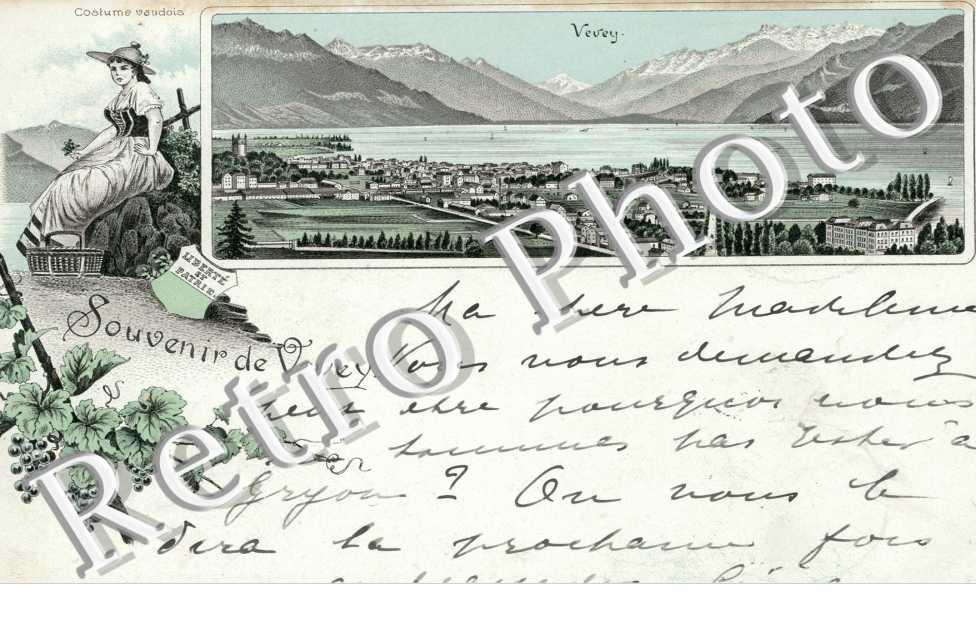 Costume vaudois
Vevey.
LIBERTÉ
ET
PATRIE
Souvenir de Vevey
Ma chere Madeleine
Vous vous demandez
peut etre pourquoi nous
sommes pas rester à
Gryon? On vous le
dira la prochaine fois
Retro Photo